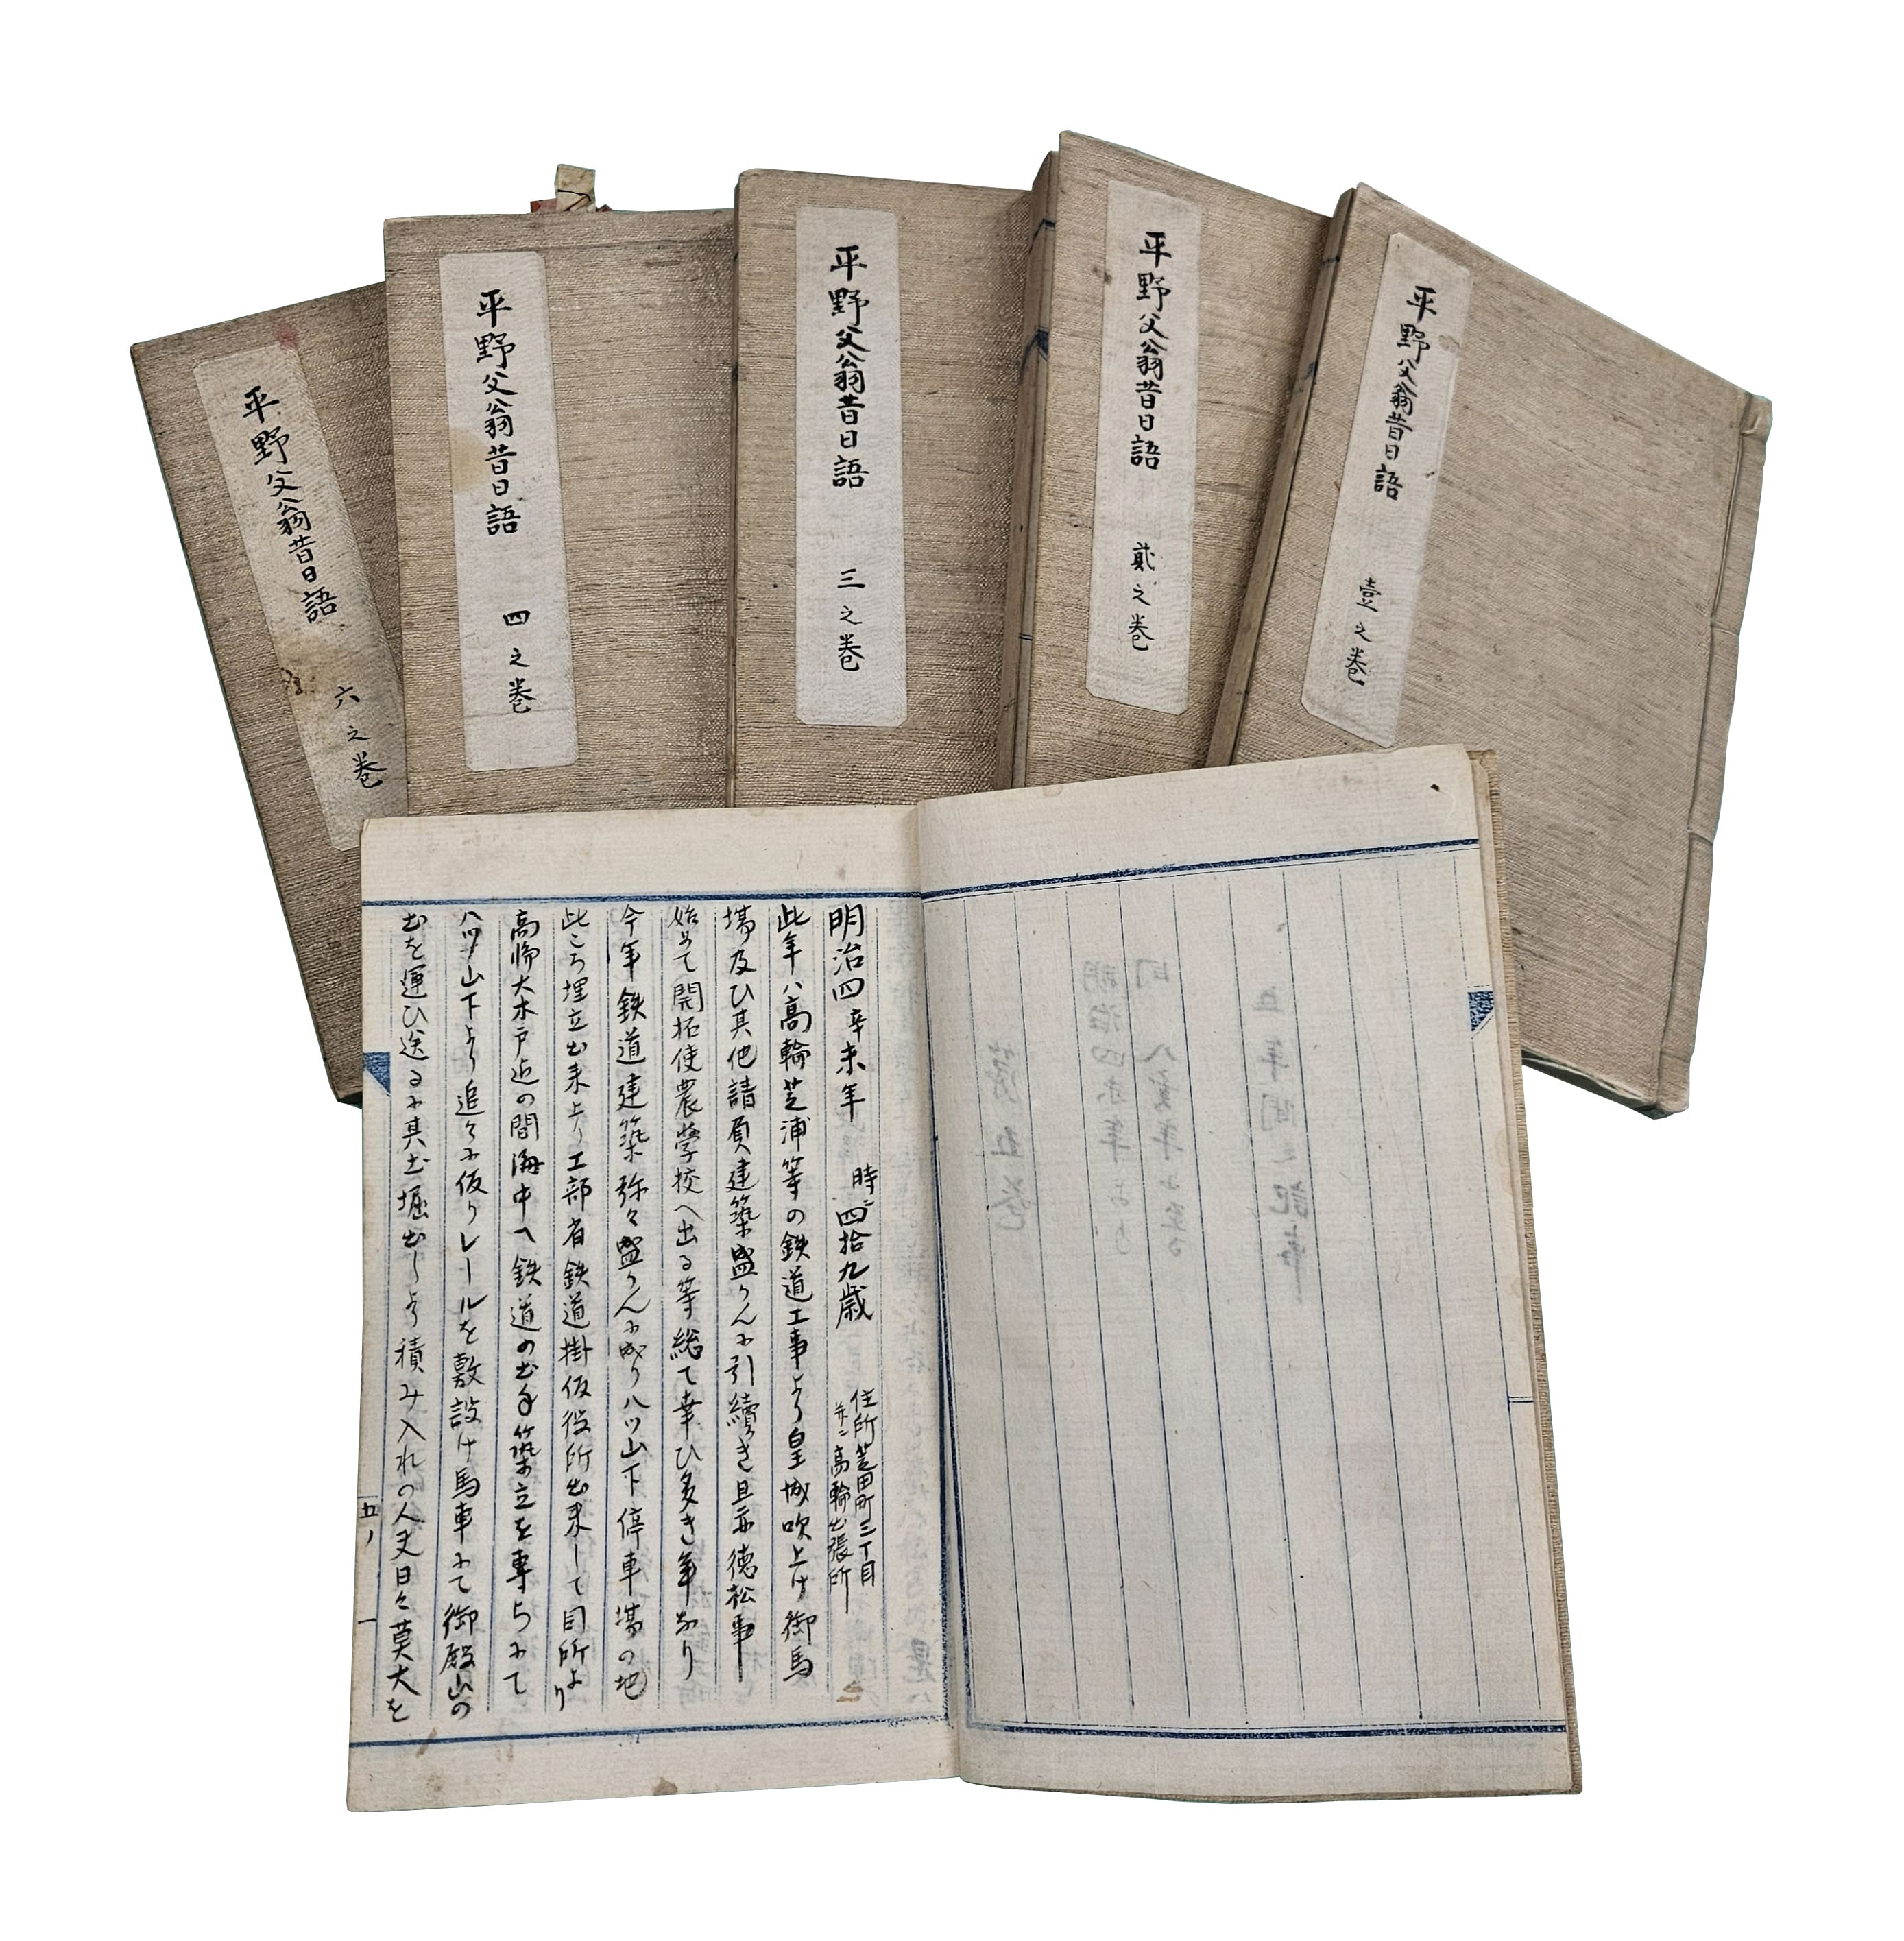 平野父翁昔日語 壹之巻
平野父翁昔日語 貮之巻
平野父翁昔日語 三之巻
平野父翁昔日語 四之巻
平野父翁昔日語 六之巻
明治四辛未年 時ニ四拾九歳 住所芝田町三丁目
並ニ高輪出張所
此年ハ高輪芝浦等の鉄道工事より皇城吹上け御馬
場及ひ其他請負建築盛りんに引續き且亦徳松事
始めて開拓使農學校へ出る等総て幸ひ多き年なり
今年鉄道建築弥々盛りんに成りハツ山下停車場の地
此ころ埋立出来上り工部省鉄道掛仮役所出来して同所より
高輪大木戸迄の間海中へ鉄道の土手築立を専らにて
ハツ山下より追々に仮りレールを敷設け馬車にて御殿山の
土を運ひ送るに其土堀出しより積み入れの人夫日々莫大を
五ノ 一